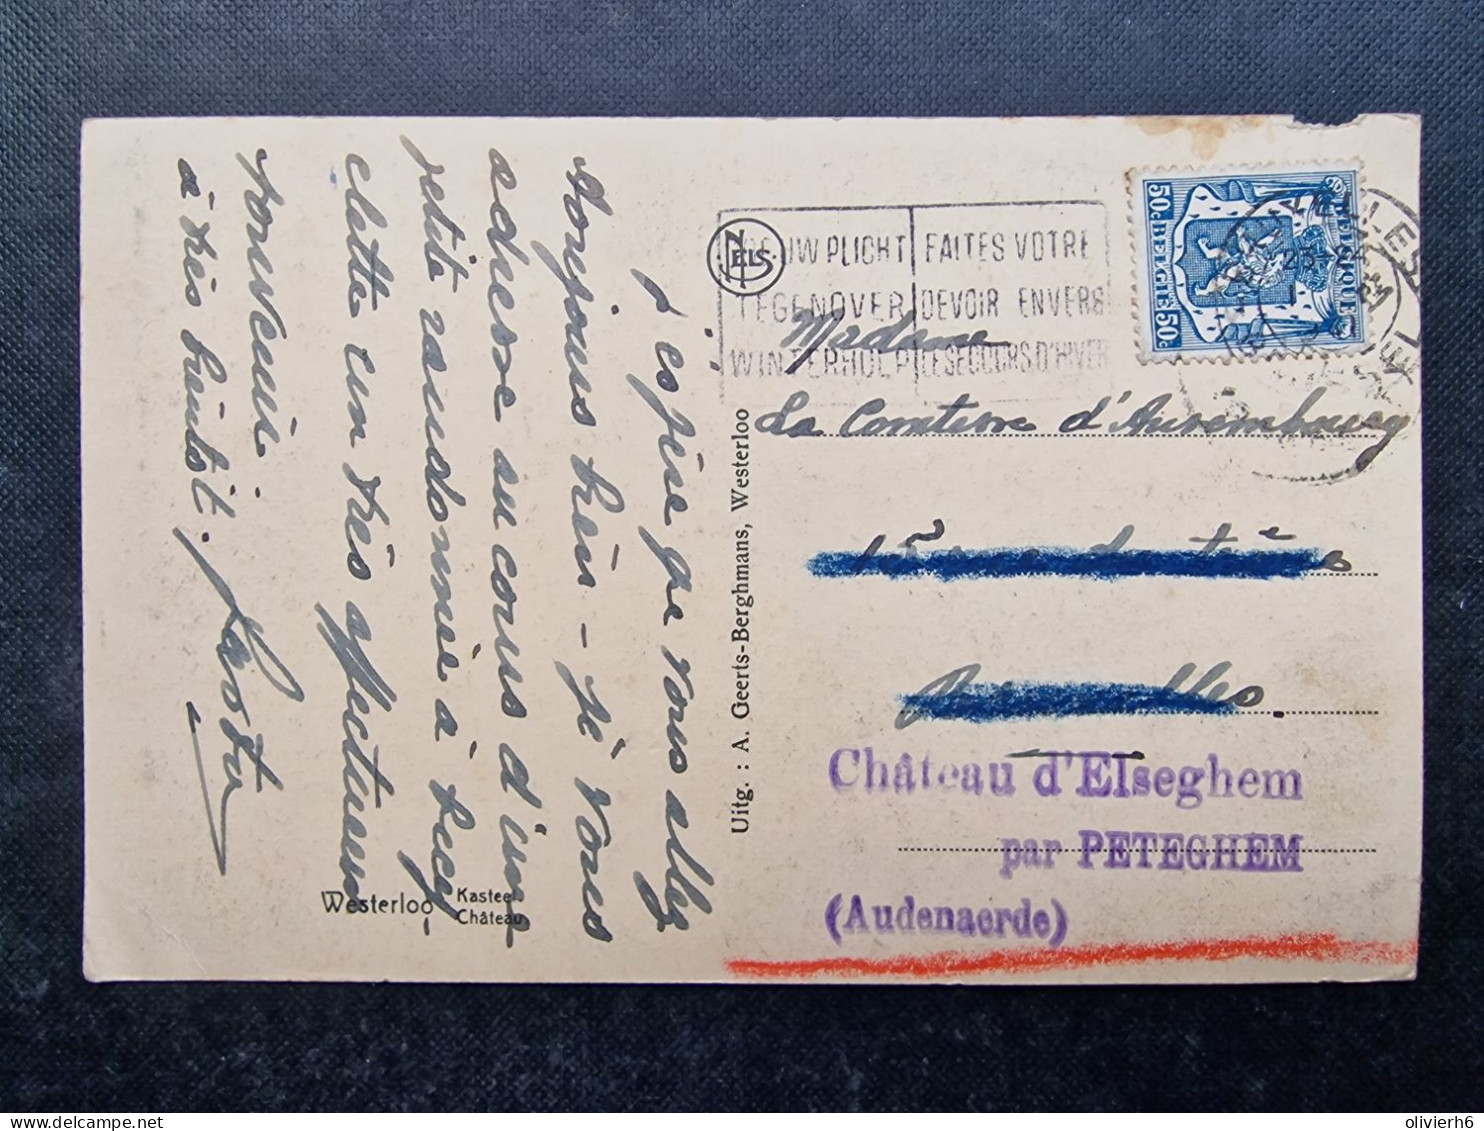 J'espère que vous allez
toujours bien - je vous
adresse au cours d'une
petite randonnée à bicy
clette un très affectueux
souvenir
à très bientôt.
Westerloo
Kasteel
Château
Uitg. : A. Geerts-Berghmans, Westerloo
NELS
UW PLICHT
TEGENOVER
WINTERHULP
FAITES VOTRE
DEVOIR ENVERS
LE SECOURS D'HIVER
50c BELGIE 50c
BELGIQUE
23-24
Madame
La Comtesse d'Aursembourg
15
Château d'Elseghem
par PETEGHEM
(Audenaerde)
olivierh6